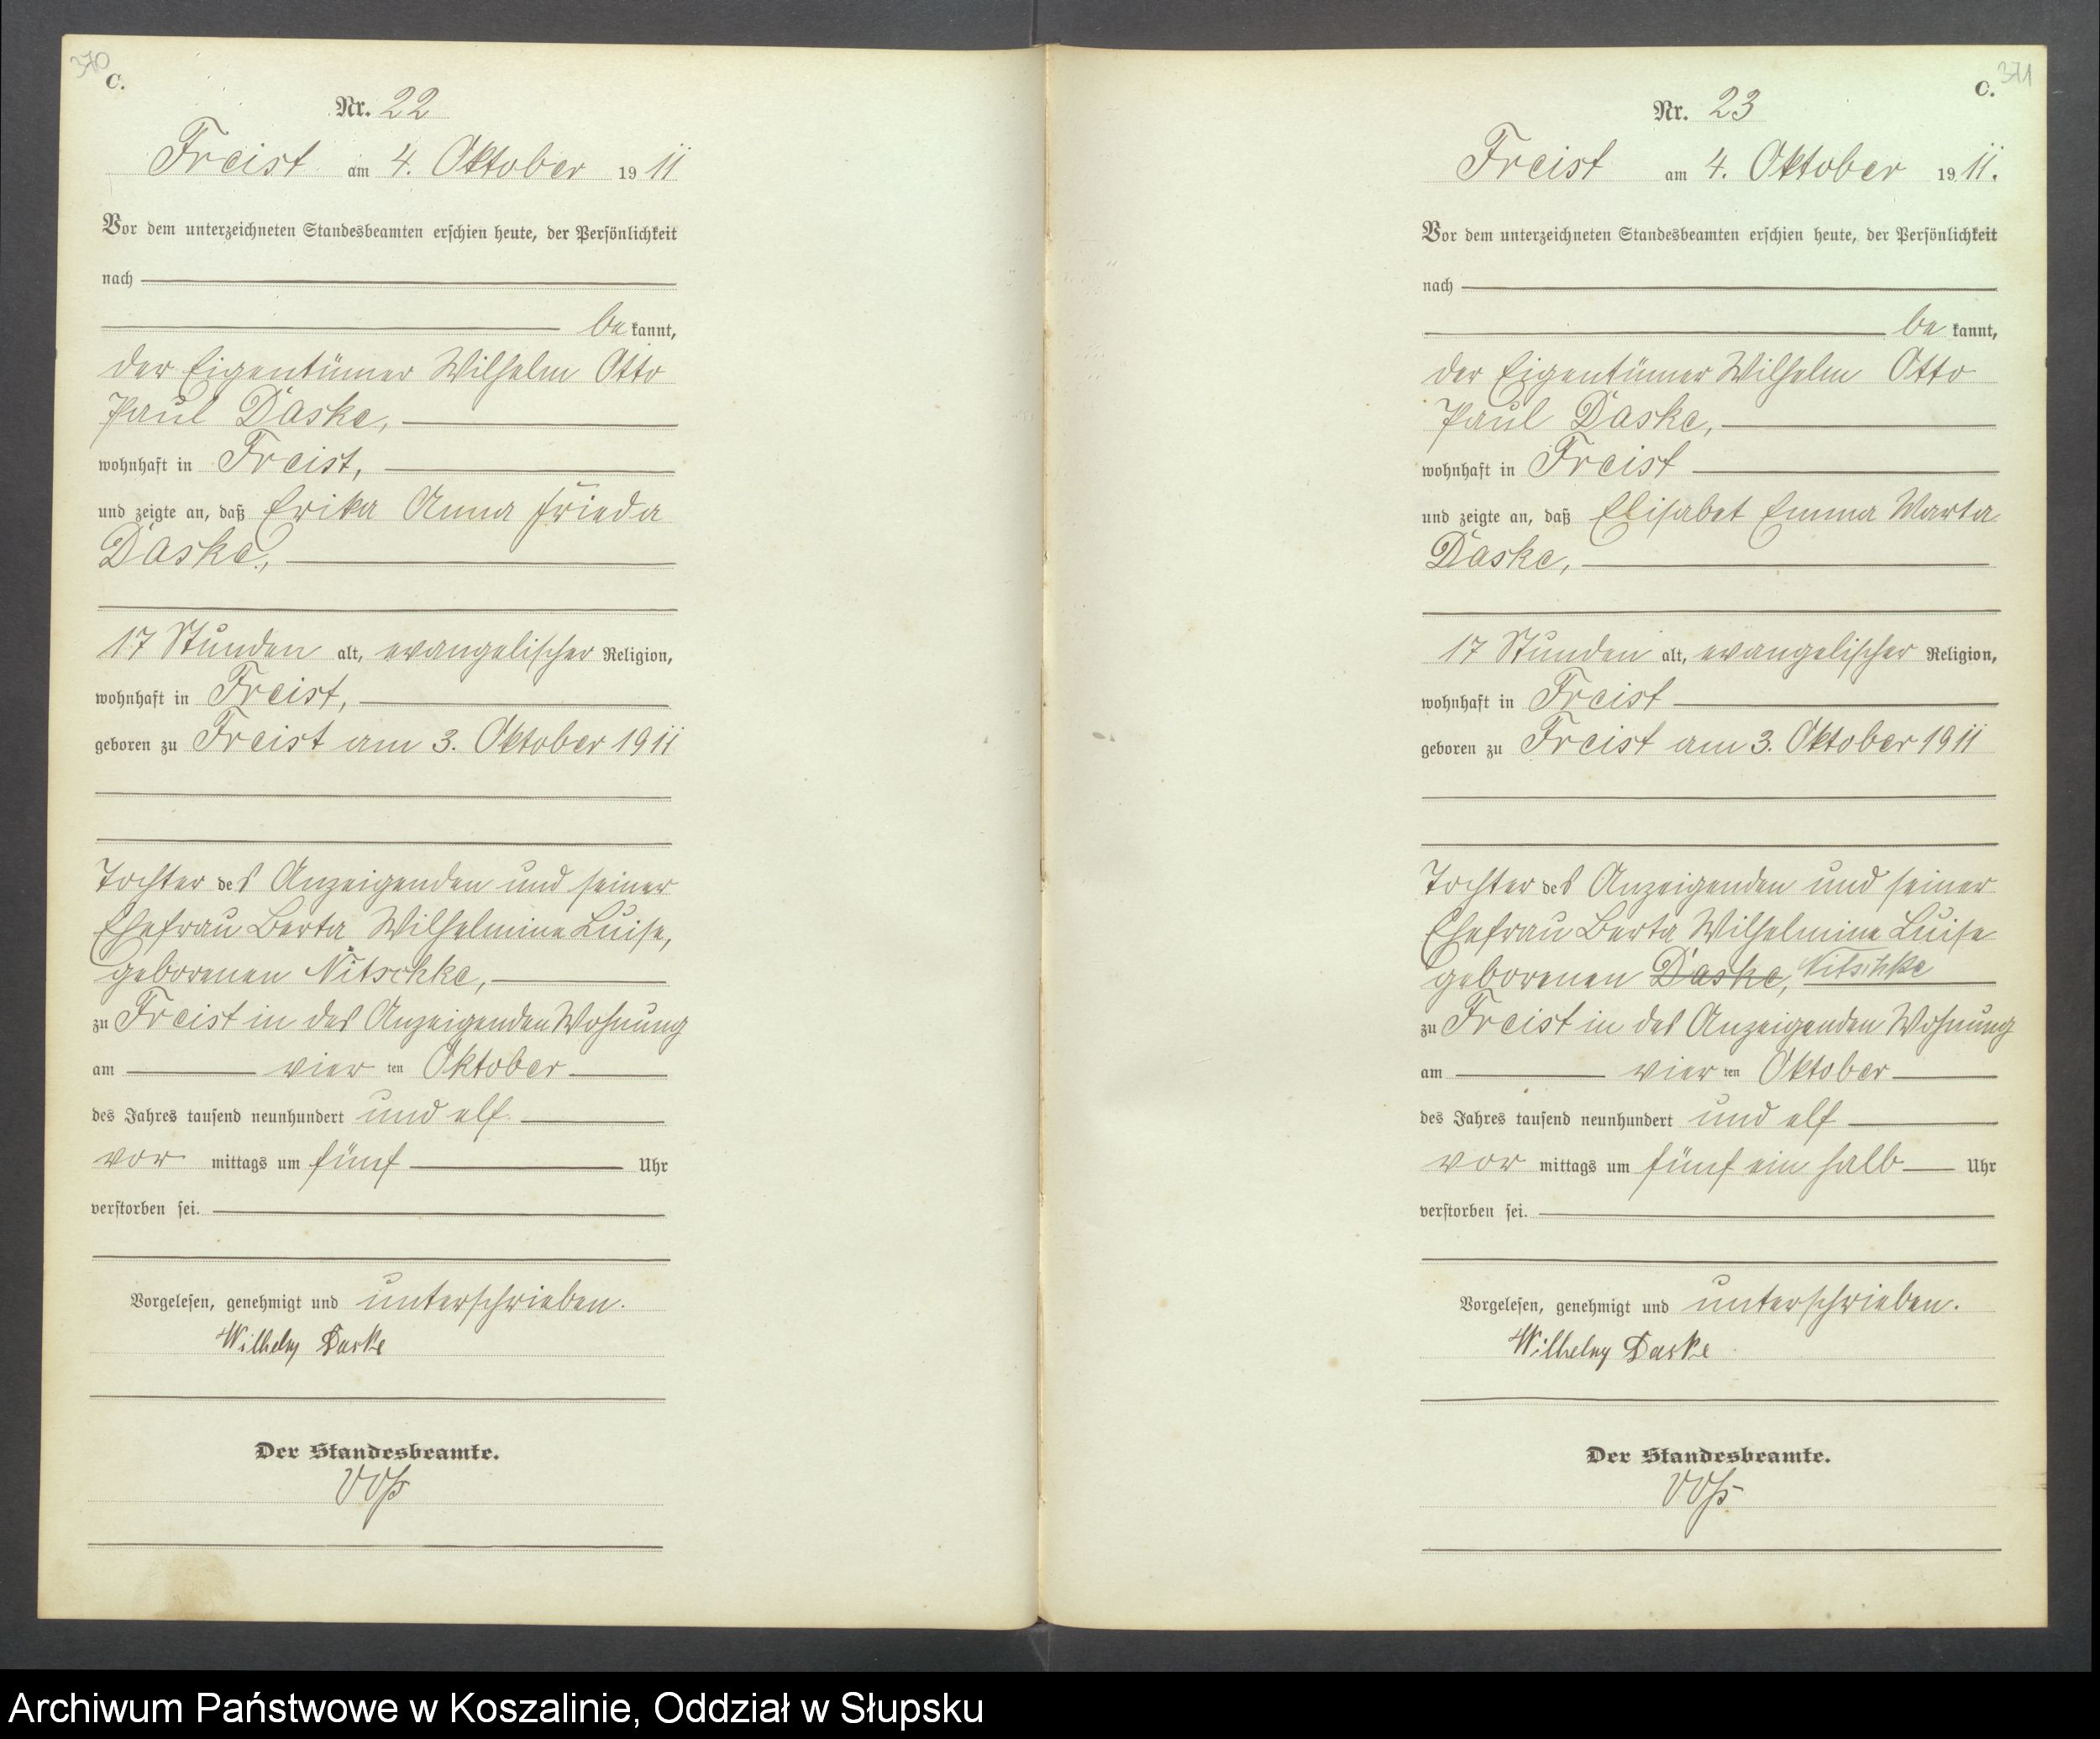 370
C.
Nr. 22
Freist am 4. Oktober 1911
Vor dem unterzeichneten Standesbeamten erschien heute, der Persönlichkeit
nach
be kannt,
der Eigentümer Wilhelm Otto
Paul Daske,
wohnhaft in Freist,
und zeigte an, daß Erika Anna Frieda
Daske,
17 Stunden alt, evangelischer Religion,
wohnhaft in Freist,
geboren zu Freist am 3. Oktober 1911
Tochter des Anzeigenden und seiner
Ehefrau Berta Wilhelmine Luise,
geborenen Nitschke,
zu Freist in des Anzeigenden Wohnung
am vier ten Oktober
des Jahres tausend neunhundert und elf
vor mittags um fünf Uhr
verstorben sei.
Vorgelesen, genehmigt und unterschrieben.
Wilhelm Daske
Der Standesbeamte.
Voß
371
C.
Nr. 23
Freist am 4. Oktober 1911.
Vor dem unterzeichneten Standesbeamten erschien heute, der Persönlichkeit
nach
be kannt,
der Eigentümer Wilhelm Otto
Paul Daske,
wohnhaft in Freist
und zeigte an, daß Elisabet Emma Marta
Daske,
17 Stunden alt, evangelischer Religion,
wohnhaft in Freist
geboren zu Freist am 3. Oktober 1911
Tochter des Anzeigenden und seiner
Ehefrau Berta Wilhelmine Luise
geborenen Daske, Nitschke
zu Freist in des Anzeigenden Wohnung
am vier ten Oktober
des Jahres tausend neunhundert und elf
vor mittags um fünf ein halb Uhr
verstorben sei.
Vorgelesen, genehmigt und unterschrieben.
Wilhelm Daske
Der Standesbeamte.
Voß
Archiwum Państwowe w Koszalinie, Oddział w Słupsku